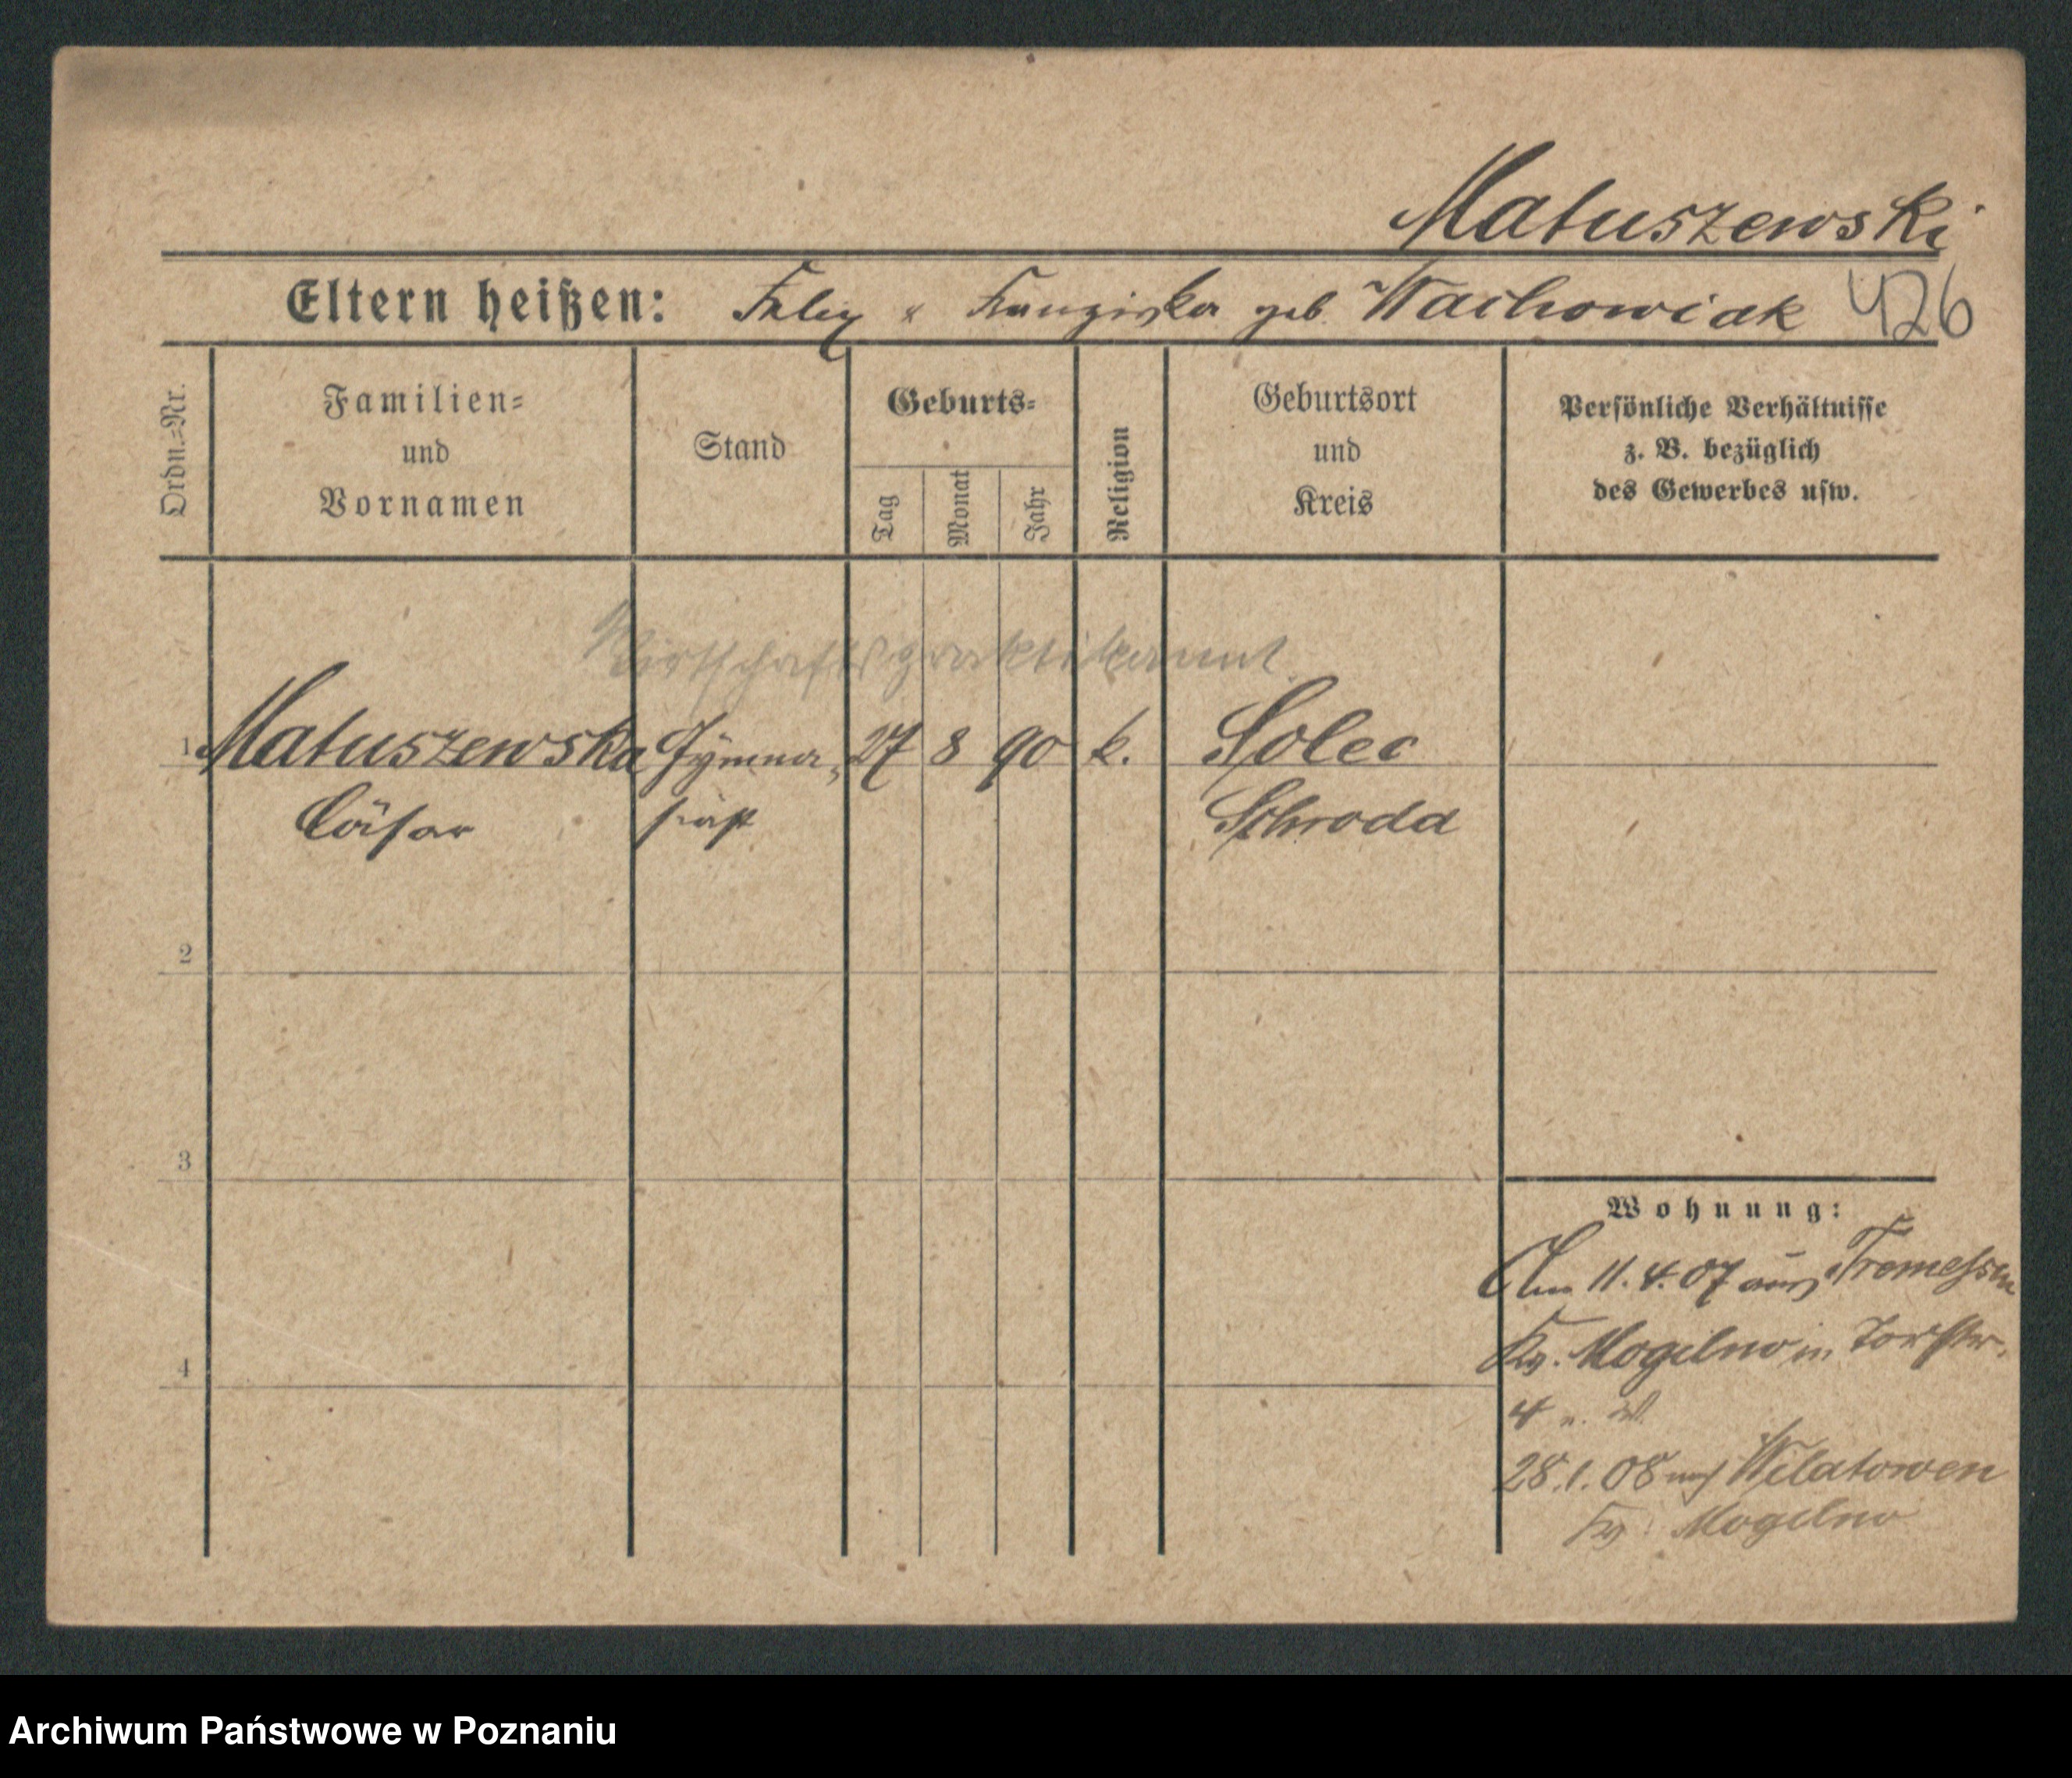 Matuszewski
Eltern heißen: Felix u Franziska geb. Wachowiak 426
Ordn.=Nr.
Familien=
und
Vornamen
Stand
Geburts=
Tag
Monat
Jahr
Religion
Geburtsort
und
Kreis
Persönliche Verhältnisse
z. B. bezüglich
des Gewerbes usw.
Wirtschaftspraktikannt
1 Matuszewska Gymna, 27 8 90 k. Solec
Cäsar siast Schroda
2
3
4
Wohnung:
Am 11.4.07 aus Tremessen
Kr. Mogilno in Torstr.
4 n.
28.1.08 nach Wilatowen
Kr. Mogilno
Archiwum Państwowe w Poznaniu